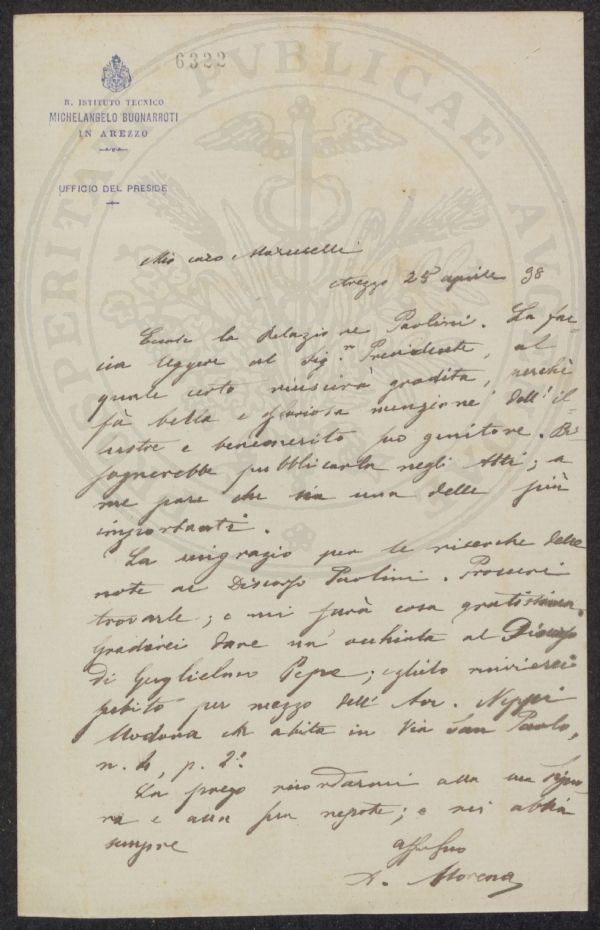 6322
R. ISTITUTO TECNICO
MICHELANGELO BUONARROTI
IN AREZZO
UFFICIO DEL PRESIDE
PROSPERITAS PVBLICAE
Mio caro Marucelli
Arezzo 25 aprile 98
Eccole la Relazione Paolini. La fac-
cia leggere al Sig.r Presidente, al
quale certo riuscirà gradita, perchè
fà bella e gloriosa menzione dell' il-
lustre e benemerito suo genitore. Bi-
sognerebbe pubblicarla negli Atti; a
me pare che sia una delle più
importanti.
La ringrazio per le ricerche delle
note al Discorso Paolini. Procuri
trovarle; e mi farà cosa gratissima.
Gradirei dare un' occhiata al Discorso
di Guglielmo Pepe; glielo rinvierei
subito per mezzo dell' Avv. Neppi
Modona che abita in Via San Paolo,
n. 4, p. 2.o
La prego ricordarmi alla sua Signo-
ra e alla sua nepote; e mi abbia
sempre
aff.mo Suo
A. Morena